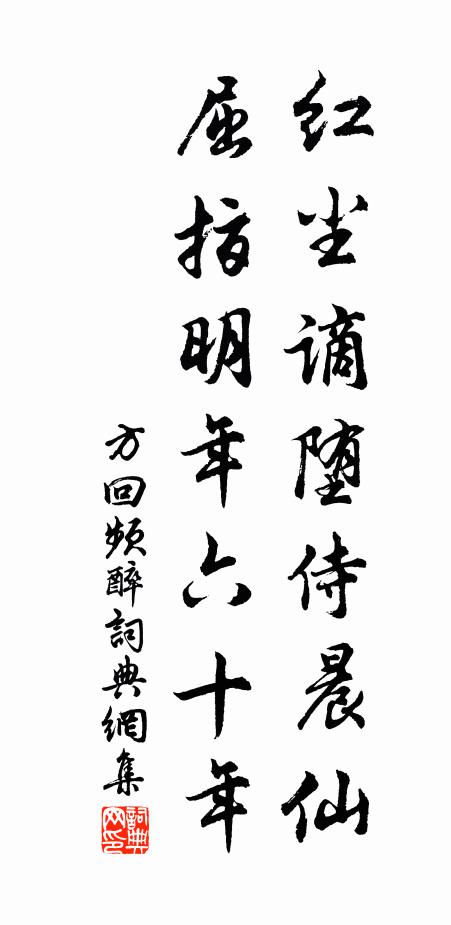 红尘谪堕侍晨仙
屈指明年六十年
方回频醉詞典網集
詞典网印